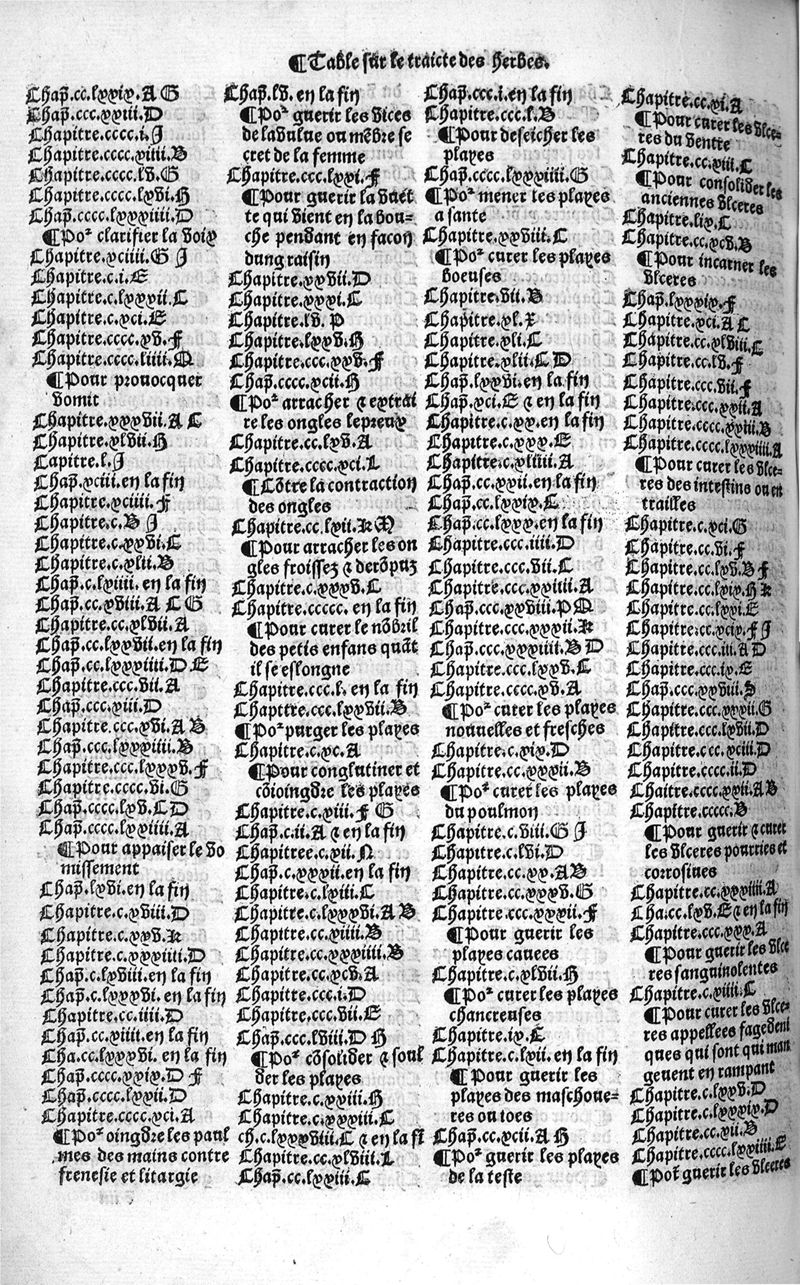 ¶Table sur le traicte des herbes.
Chap̃.cc.lxxix.A G
Chap̃.ccc.xxiii.D
Chapitre.cccc.i.J
Chapitre.cccc.xiiii.B
Chapitre.cccc.lv.G
Chapitre.cccc.lxvi.H
Chap̃.cccc.lxxxiiii.D
¶Poᵘʳ clarifier la voix
Chapitre.xciiii.G J
Chapitre.c.i.E
Chapitre.c.lxxxii.C
Chapitre.c.xci.E
Chapitre.cccc.xv.F
Chapitre.cccc.liiii.M
¶Pour prouocquer
vomit
Chapitre.xxxvii.A C
Chapitre.xlvii.H
Capitre.l.J
Chap̃.xciii.en la fin
Chapitre.xciiii.F
Chapitre.c.B J
Chapitre.c.xxvi.C
Chapitre.c.xlii.B
Chap̃.c.lxiiii.en la fin
Chap̃.cc.xviii.A C G
Chapitre.cc.xlvii.A
Chap̃.cc.lxxvii.en la fin
Chap̃.cc.lxxxiiii.D E
Chapitre.ccc.vii.A
Chap̃.ccc.xiii.D
Chapitre.ccc.xvi.A B
Chap̃.ccc.lxxiiii.B
Chapitre.ccc.lxxxv.F
Chapitre.cccc.vi.G
Chap̃.cccc.lxv.C D
Chap̃.cccc.lxxiiii.A
¶Pour appaiser le vo
missement
Chap̃.lxvi.en la fin
Chapitre.c.xviii.D
Chapitre.c.xxv.K
Chapitre.c.xxxiiii.D
Chap̃.c.lxviii.en la fin
Chap̃.c.lxxxvi.en la fin
Chapitre.cc.iiii.D
Chap̃.cc.xiiii.en la fin
Cha.cc.lxxxvi.en la fin
Chap̃.cccc.xxix.D F
Chap̃.cccc.lxxii.D
Chapitre.cccc.xci.A
¶Poᵘʳ oingdre les paul
mes des mains contre
frenesie et litargie
Chap̃.lv.en la fin
¶Poᵘʳ guerir les vices
de la vulue ou mẽbre se
cret de la femme
Chapitre.ccc.lxxi.F
¶Pour guerir la vuet
te qui vient en la bou-
che pendant en facon
dung raisin
Chapitre.xxvii.D
Chapitre.xxxi.C
Chapitre.lv.P
Chapitre.lxxv.H
Chapitre.ccc.xxv.F
Chap̃.cccc.xcii.H
¶Poᵘʳ arracher ⁊ extrai
re les ongles lepreux
Chapitre.cc.lxv.A
Chapitre.cccc.xci.L
¶Cõtre la contraction
des ongles
Chapitre.cc.lxii.K M
¶Pour arracher les on
gles froissez ⁊ derõpuz
Chapitre.c.xxxv.C
Chapitre.ccccc.en la fin
¶Pour curer le nõbril
des petis enfans quãt
il se eslongne
Chapitre.ccc.l.en la fin
Chapitre.ccc.lxxvii.B
¶Poᵘʳ purger les playes
Chapitre.c.xc.A
¶Pour conglutiner et
cõioingdre les playes
Chapitre.c.xiii.F G
Chap̃.c.ii.A ⁊ en la fin
Chapitree.c.xii.N
Chap̃.c.xxxii.en la fin
Chapitre.c.lxiii.C
Chapitre.c.lxxxvi.A B
Chapitre.cc.xiiii.B
Chapitre.cc.xxxiiii.B
Chapitre.cc.xcv.A
Chapitre.ccc.i.D
Chapitre.ccc.vii.E
Chap̃.ccc.lviii.D H
¶Poᵘʳ cõsolider ⁊ soul
der les playes
Chapitre.c.xxiii.H
Chapitre.c.xxxiii.C
ch.c.lxxxviii.C ⁊ en la fi
Chapitre.cc.xlviii.L
Chap̃.cc.lxxiii.C
Chap̃.ccc.i.en la fin
Chapitre.ccc.l.B
¶Pour deseicher les
playes
Chap̃.cccc.lxxxiiii.G
¶Poᵘʳ mener les playes
a sante
Chapitre.xxviii.C
¶Poᵘʳ curer les playes
boeuses
Chapitre.vii.B
Chapitre.xl.X
Chapitre.xli.C
Chapitre.xlii.C D
Chap̃.lxxvi.en la fin
Chap̃.xci.E ⁊ en la fin
Chapitre.c.xx.en la fin
Chapitre.c.xxx.E
Chapitre.c.xliiii.A
Chap̃.cc.xxii.en la fin
Chap̃.cc.lxxix.C
Chap̃.cc.lxxx.en la fin
Chapitre.ccc.iiii.D
Chapitre.ccc.vii.C
Chapitre.ccc.xxiiii.A
Chap̃.ccc.xxviii.P M
Chapitre.ccc.xxxii.K
Chap̃.ccc.xxxiiii.B D
Chapitre.ccc.lxxv.C
Chapitre.cccc.xv.A
¶Poᵘʳ curer les playes
nouuelles et fresches
Chapitre.c.xix.D
Chapitre.ccc.xxxii.B
¶Poᵘʳ curer les playes
du poulmon
Chapitre.c.viii.G J
Chapitre.c.lvi.D
Chapitre.cc.xx.A B
Chapitre.cc.xxxv.G
Chapitre.ccc.xxxii.F
¶Pour guerir les
playes cauees
Chapitre.c.xlvii.H
¶Poᵘʳ curer les playes
chancreuses
Chapitre.ix.E
Chapitre.c.lxii.en la fin
¶Pour guerir les
playes des maschoue-
res ou ioes
Chap̃.cc.xcii.A H
¶Poᵘʳ guerir les playes
de la teste
Chapitre.cc.xi.A
¶Pour curer les vlce-
res du ventre
Chapitre.cc.xiii.C
¶Pour consolider les
anciennes vlceres
Chapitre.lix.C
Chapitre.cc.xcv.B
¶Pour incarner les
vlceres
Chap̃.lxxxix.F
Chapitre.xci.A C
Chapitre.cc.xlviii.C
Chapitre.cc.lv.F
Chapitre.ccc.vii.F
Chapitre.ccc.xxii.A
Chapitre.cccc.xxiii.B
Chapitre.cccc.lxxiiii.A
¶Pour curer les vlce-
res des intestins ou en
trailles
Chapitre.c.xci.G
Chapitre.cc.vi.F
Chapitre.cc.lxv.B F
Chapitre.cc.lxix.H K
Chapitre.cc.lxxi.E
Chapitre.cc.xcix.F J
Chapitre.ccc.iii.A D
Chapitre.ccc.ix.E
Chap̃.ccc.xxviii.S
Chapitre.ccc.xxxii.G
Chapitre.ccc.lxvii.D
Chapitre.ccc.xciii.D
Chapitre.cccc.ii.D
Chaitre.cccc.xxii.A B
Chapitre.ccccc.B
¶Pour guerir ⁊ curer
les vlceres pourries et
corrosiues
Chapitre.cc.xxxiiii.A
Cha.cc.lxv.E ⁊ en la fin
Chapitre.ccc.xxx.A
¶Pour guerir les vlce
res sanguinolentes
Chapitre.c.xiiii.C
¶Pour curer les vlce-
res appellees fageden
ques qui sont qui man
geuent en rampant
Chapitre.c.lxxv.D
Chapitre.c.lxxxix.D
Chapitre.cc.vii.B
Chapitre.cccc.lxxiiii.E
¶Poᵘʳ guerir les vlceres